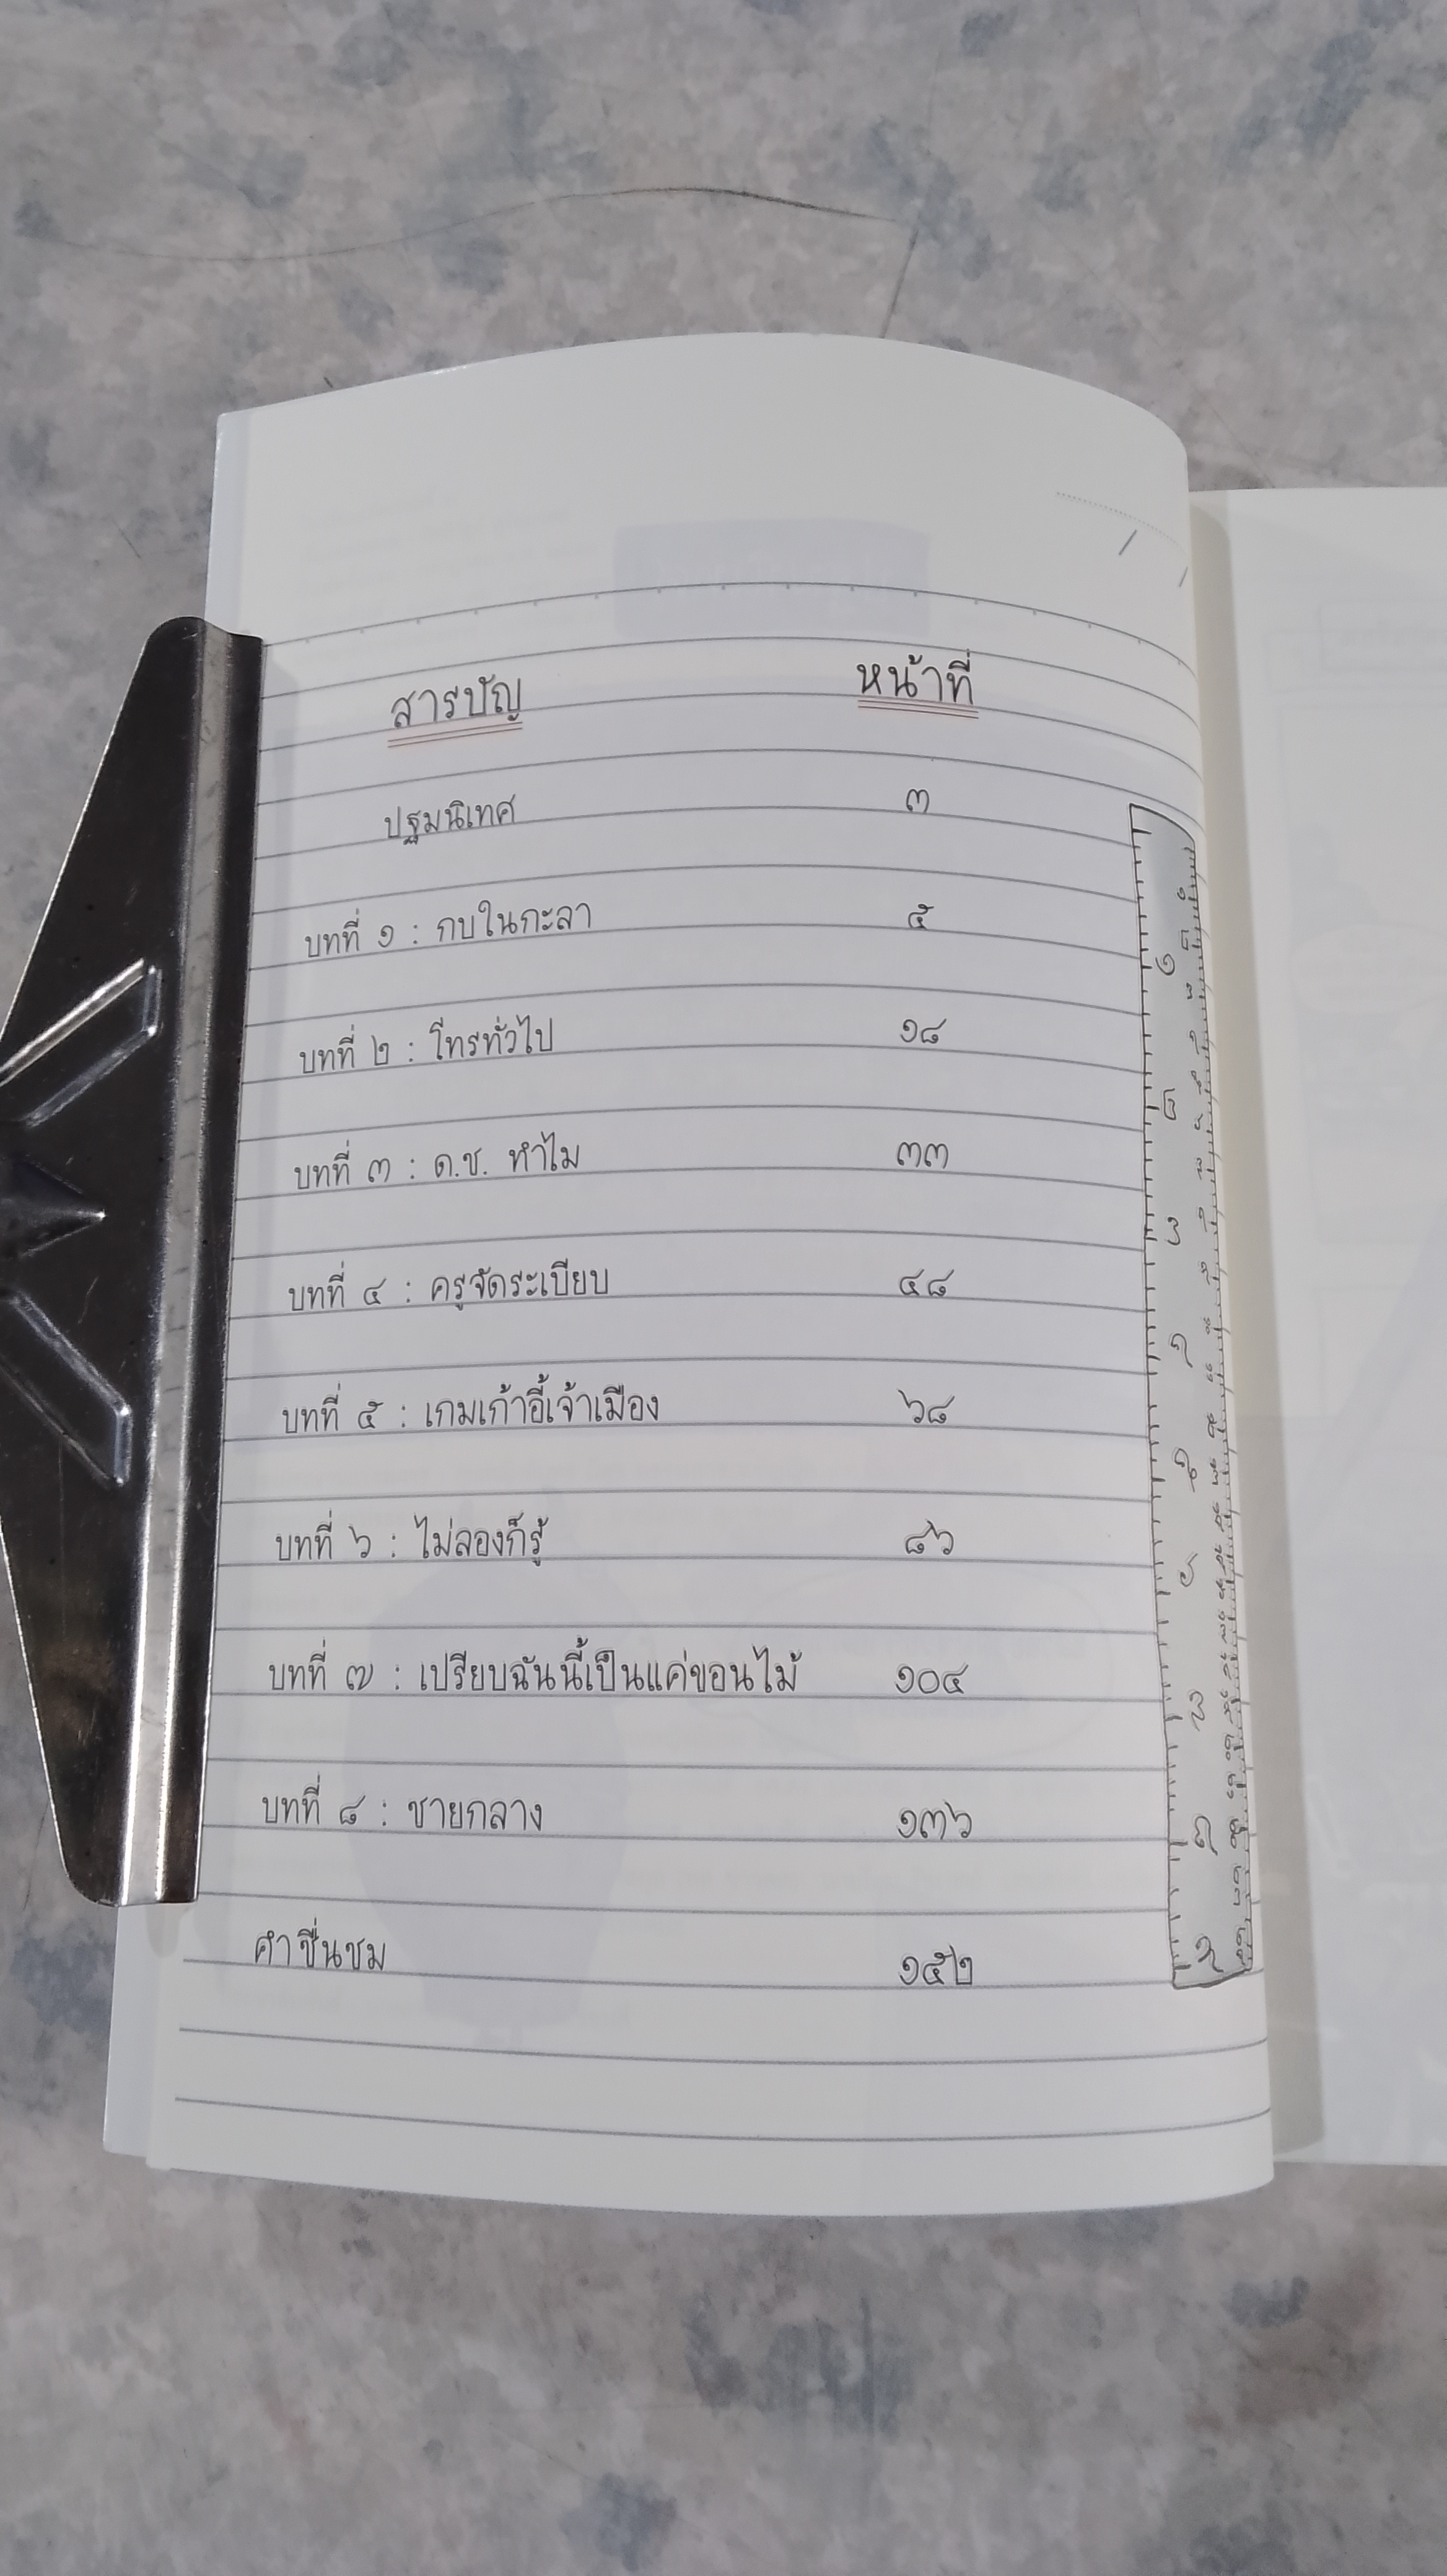 สารบัญ หน้าที่
ปฐมนิเทศ ๓
บทที่ ๑ : กบในกะลา ๕
บทที่ ๒ : โทรทั่วไป ๑๘
บทที่ ๓ : ด.ช. ทำไม ๓๓
บทที่ ๔ : ครูจัดระเบียบ ๔๘
บทที่ ๕ : เกมเก้าอี้เจ้าเมือง ๖๘
บทที่ ๖ : ไม่ลองก็รู้ ๘๖
บทที่ ๗ : เปรียบฉันนี้เป็นแค่ขอนไม้ ๑๐๔
บทที่ ๘ : ชายกลาง ๑๓๖
คำชื่นชม ๑๕๒